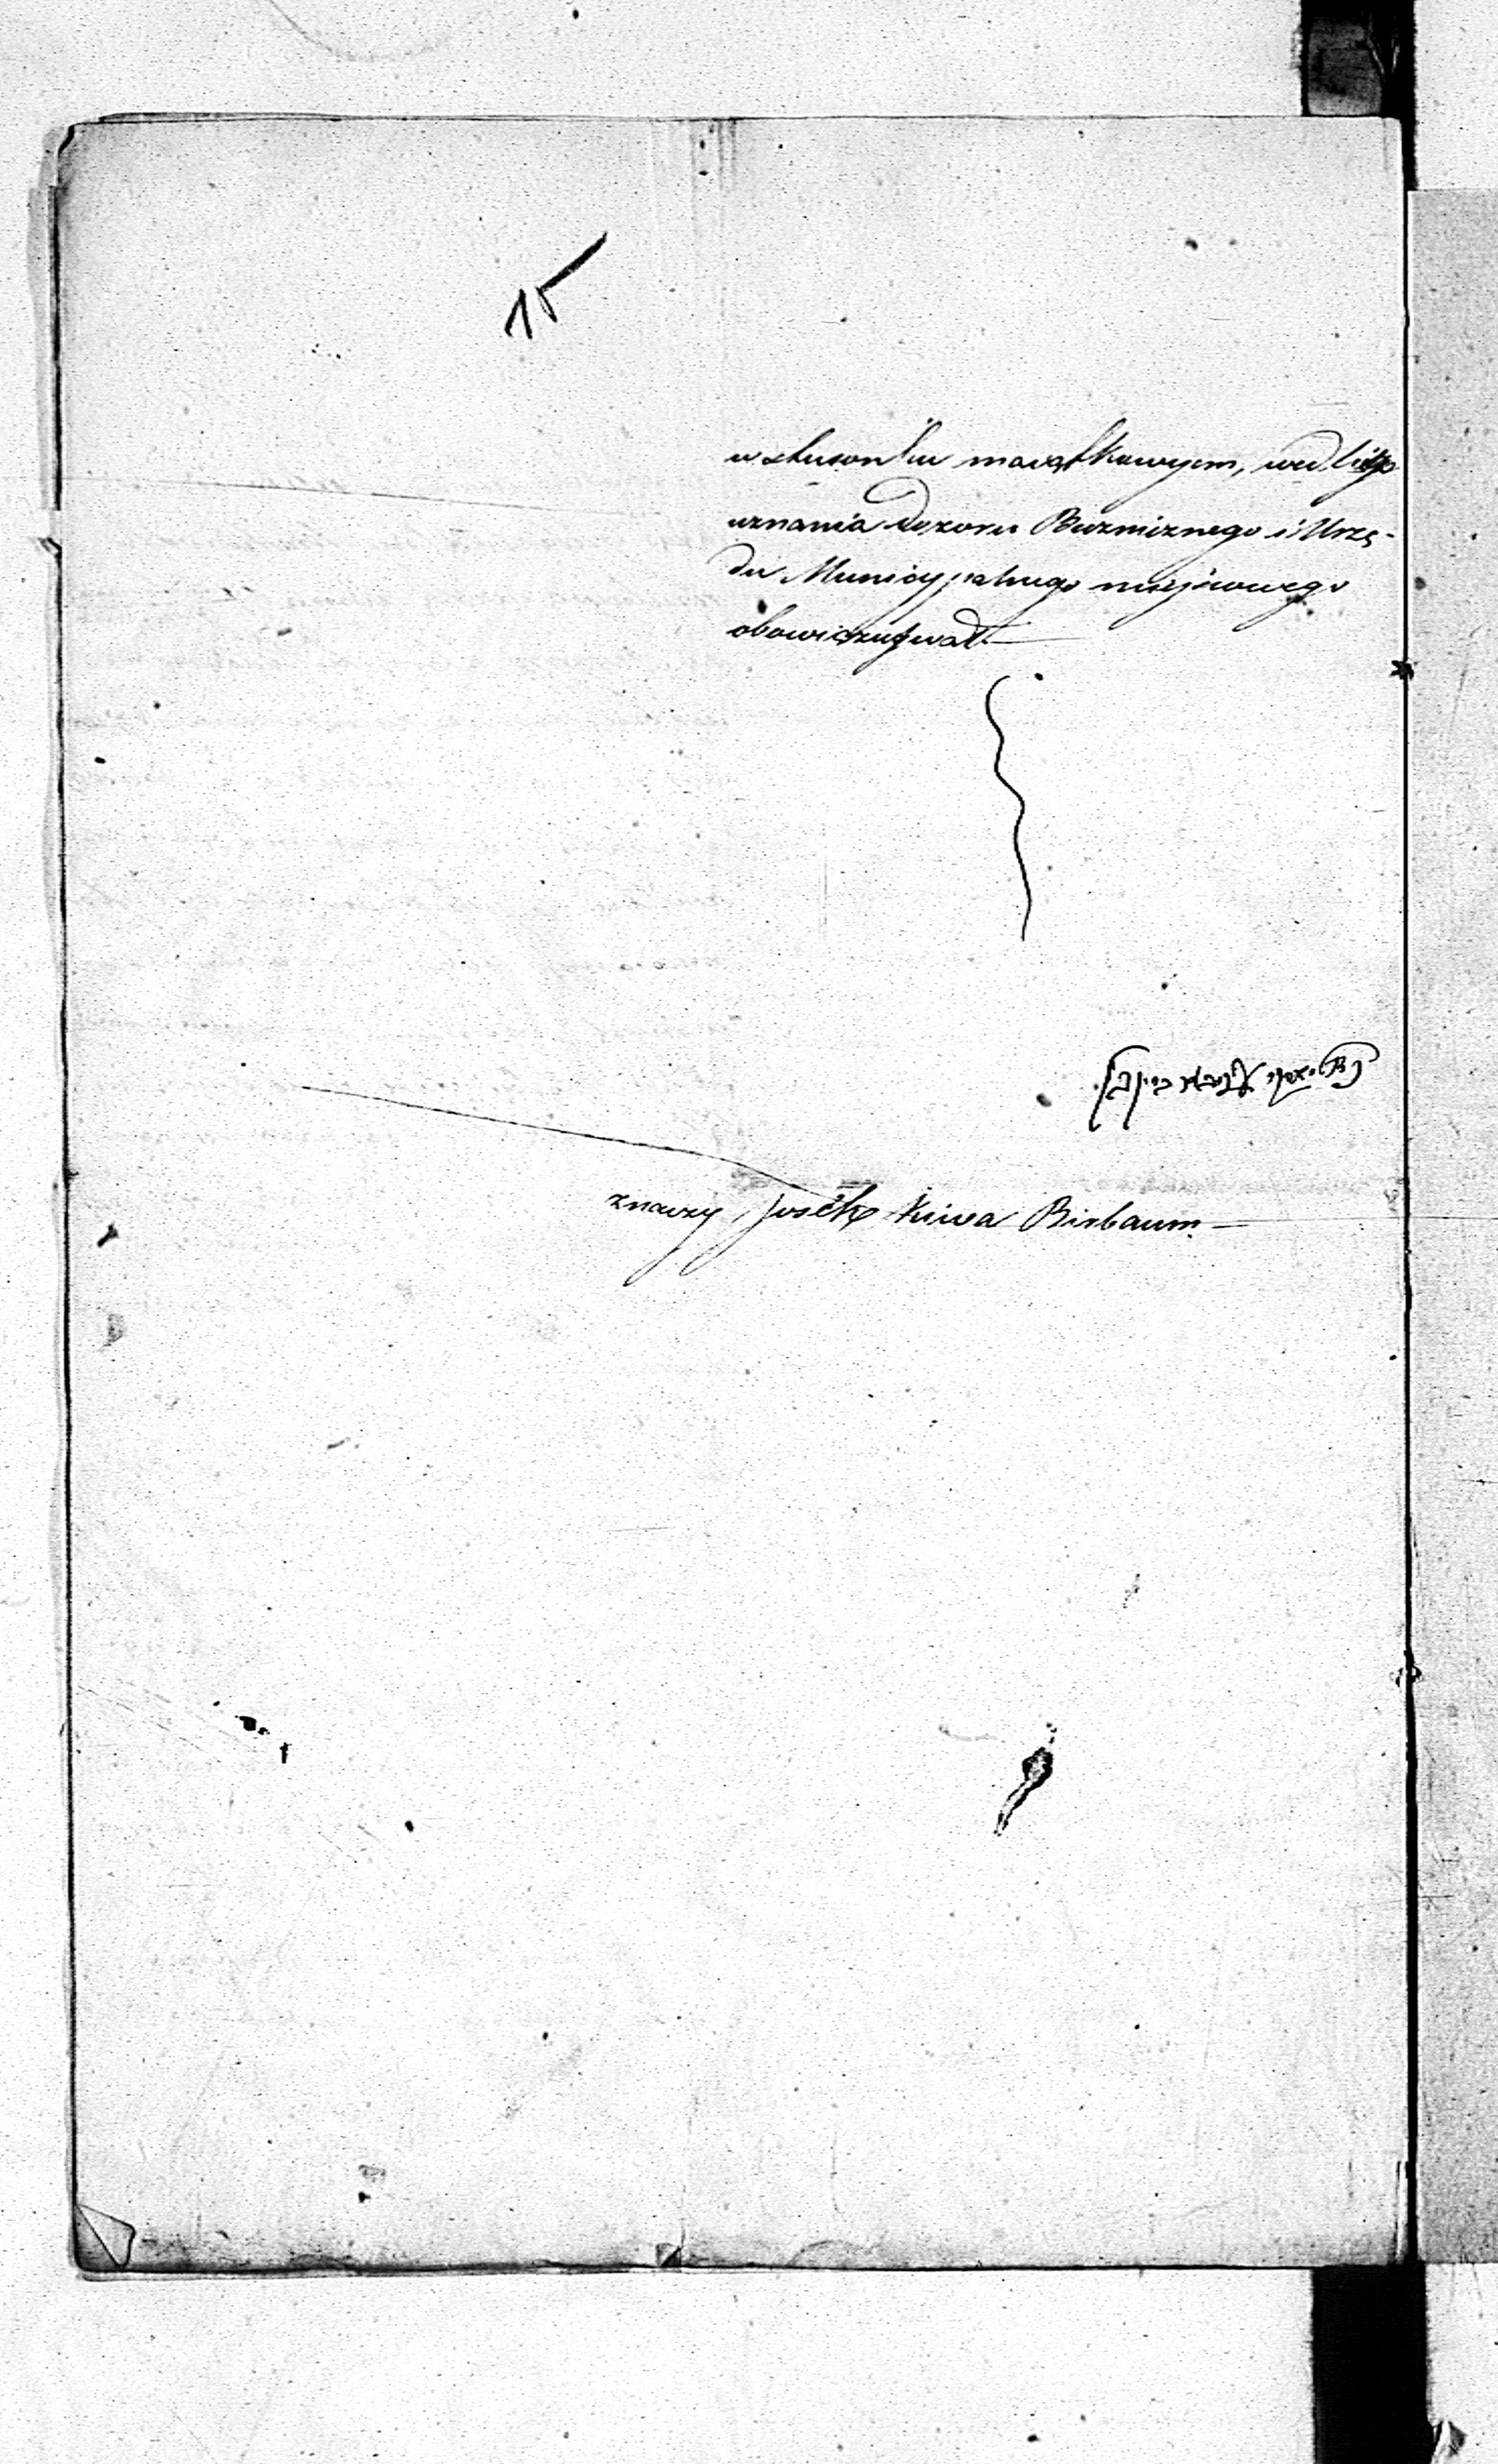 15
w stosunku majątkowym, według
uznania Dozoru Bużniczego i Urzę-
du Municypalnego miejscowego
obowiązywał.
znaczy Josek Kiwa Birbaum